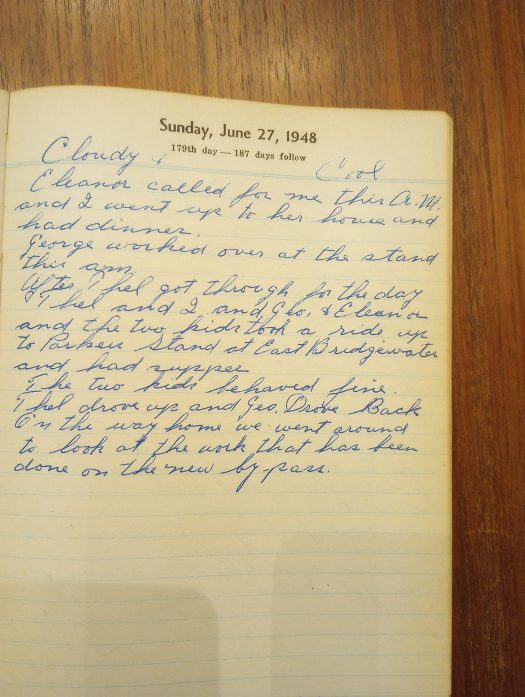 Sunday, June 27, 1948
179th day — 187 days follow
Cloudy & Cool
Eleanor called for me this A.M.
and I went up to her house and
had dinner.
George worked over at the stand
this am
After Thel got through for the day
Thel and I and Geo. & Eleanor
and the two kids took a ride up
to Parker Stand at East Bridgewater
and had supper
The two kids behaved fine.
Thel drove up and Geo. Drove Back
On the way home we went around
to look at the work that has been
done on the new by pass.